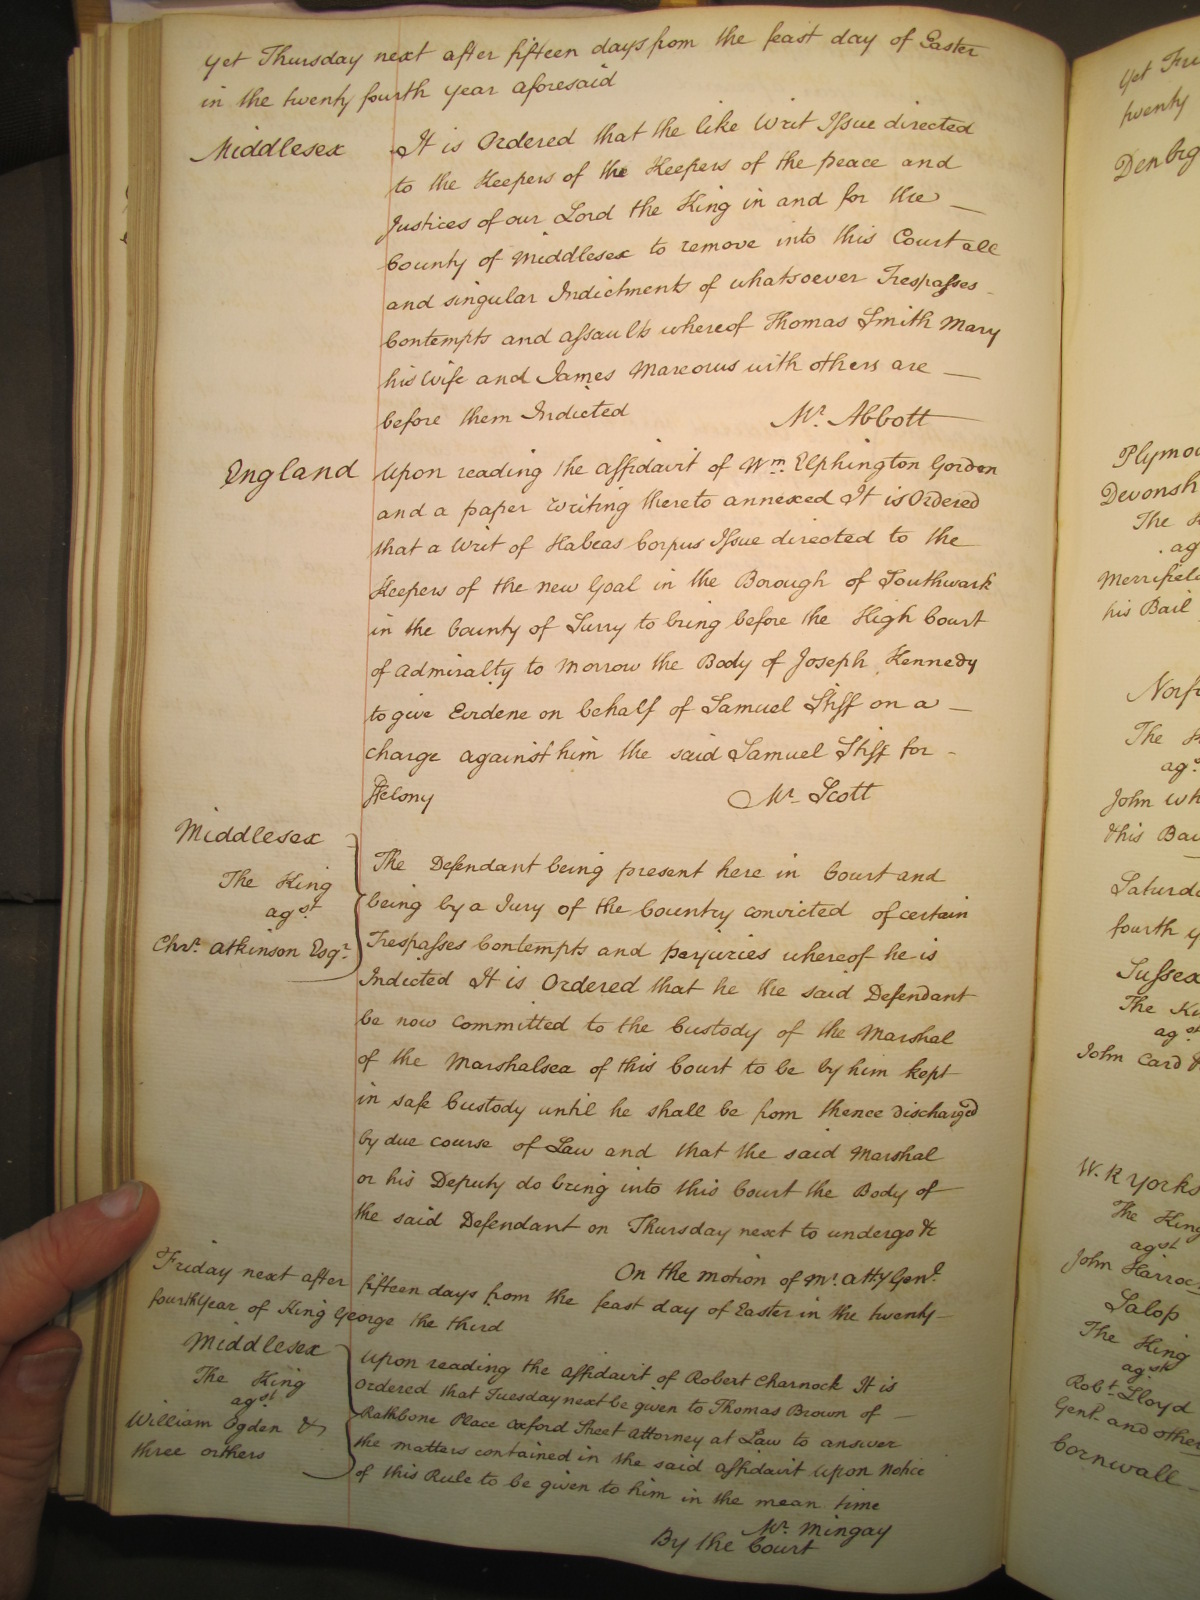 yet Thursday next after fifteen days from the feast day of Easter
in the twenty fourth year aforesaid
Middlesex
It is Ordered that the like Writ Issue directed
to the Keepers of the Keepers of the peace and
Justices of our Lord the King in and for the
County of Middlesex to remove into this Court all
and singular Indictments of whatsoever Trespasses
Contempts and assaults whereof Thomas Smith Mary
his Wife and James Mareows with others are
before them Indicted
Mr. Abbott
England
Upon reading the affidavit of Wm. Elphington Gordon
and a paper writing thereto annexed It is Ordered
that a Writ of Habeas Corpus Issue directed to the
Keepers of the new Goal in the Borough of Southwark
in the County of Surry to bring before the High Court
of Admiralty to Morrow the Body of Joseph Kennedy
to give Evidene on behalf of Samuel Stiff on a
charge against him the said Samuel Stiff for
Felony
Mr. Scott
Middlesex
The King
agst.
Chrs. Atkinson Esqr.
The Defendant being present here in Court and
being by a Jury of the Country convicted of certain
Trespasses Contempts and perjuries whereof he is
Indicted It is Ordered that he the said Defendant
be now Committed to the Custody of the Marshal
of the Marshalsea of this Court to be by him kept
in safe Custody until he shall be from thence discharged
by due course of Law and that the said Marshal
or his Deputy do bring into this Court the Body of
the said Defendant on Thursday next to undergo &c
On the motion of Mr. Atty Genl.
Friday next after fifteen days from the feast day of Easter in the twenty
fourth Year of King George the third
Middlesex
The King
agst.
William Ogden &
three orthers
Upon reading the affidavit of Robert Charnock It is
ordered that Tuesday next be given to Thomas Brown of
Rathbone Place Oxford Street Attorney at Law to answer
the matters contained in the said affidavit Upon Notice
of this Rule to be given to him in the mean time
Mr. Mingay
By the Court
yet Fri
twenty
Denbig
Plymou
Devonsh
The K
ag
Merrifield
his Bail
Norf
The K
agt.
John wh
& his Bai
Saturda
fourth y
Sussex
The Ki
agst
John Card &
W. R Yorks
The King
agst
John Harroc
Salop
The King
agst
Robt. Lloyd
Gent. and other
Cornwall